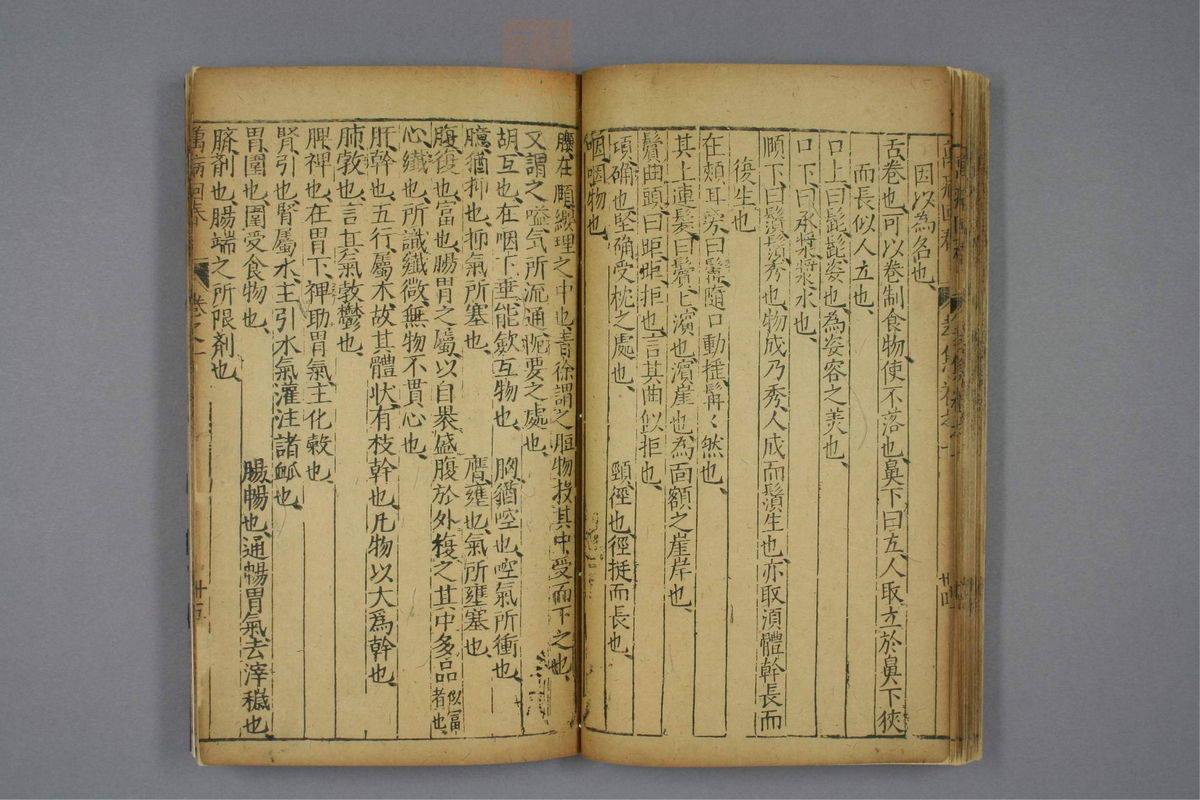 因以為名也
舌卷也可以卷制食物使不落也鼻下曰立人取立於鼻下狹
而長似人立也
口上曰髭髭姿也為姿容之美也
口下曰承漿漿水也
頤下曰鬚鬚秀也物成乃秀人成而鬚生也亦取須體幹長而
復生也
在頰耳旁曰髯隨口動搖髯々然也
其上連髮曰鬢鬢濱也濱崖也為面額之崖岸也
鬢曲頭曰距距拒也言其曲似拒也
項确也堅确受枕之處也 頸徑也徑挺而長也
咽咽物也
䐡在頤纓理之中也青徐謂之脰物投其中受而下之也
又謂之嗌氣所流通阨要之處也
胡互也在咽下垂能斂互物也 胸猶啌也啌氣所衝也
臆猶抑也抑氣所塞也 膺壅也氣所壅塞也
腹復也富也腸胃之屬以自裹盛腹於外複之其中多品似富者也
心纖也所識纖微無物不貫心也
肝幹也五行屬木故其體狀有枝幹也凡物以大爲幹也
肺敦也言其氣敦鬱也
脾裨也在胃下裨助胃氣主化穀也
腎引也腎屬水主引水氣灌注諸脈也
胃圍也圍受食物也 腸暢也通暢胃氣去滓穢也
臍劑也腸端之所限劑也
萬病回春 卷之一